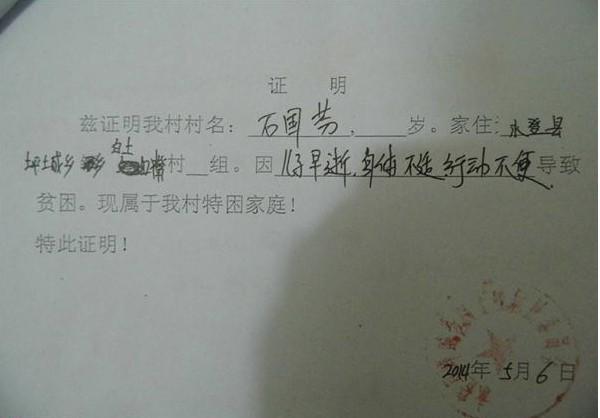 证 明
兹证明我村村名：石国芳，____岁。家住：永登县
坪城乡 村__组。因 儿子早逝，身体不适，行动不便 导致
贫困。现属于我村特困家庭！
特此证明！
2014年5月6日